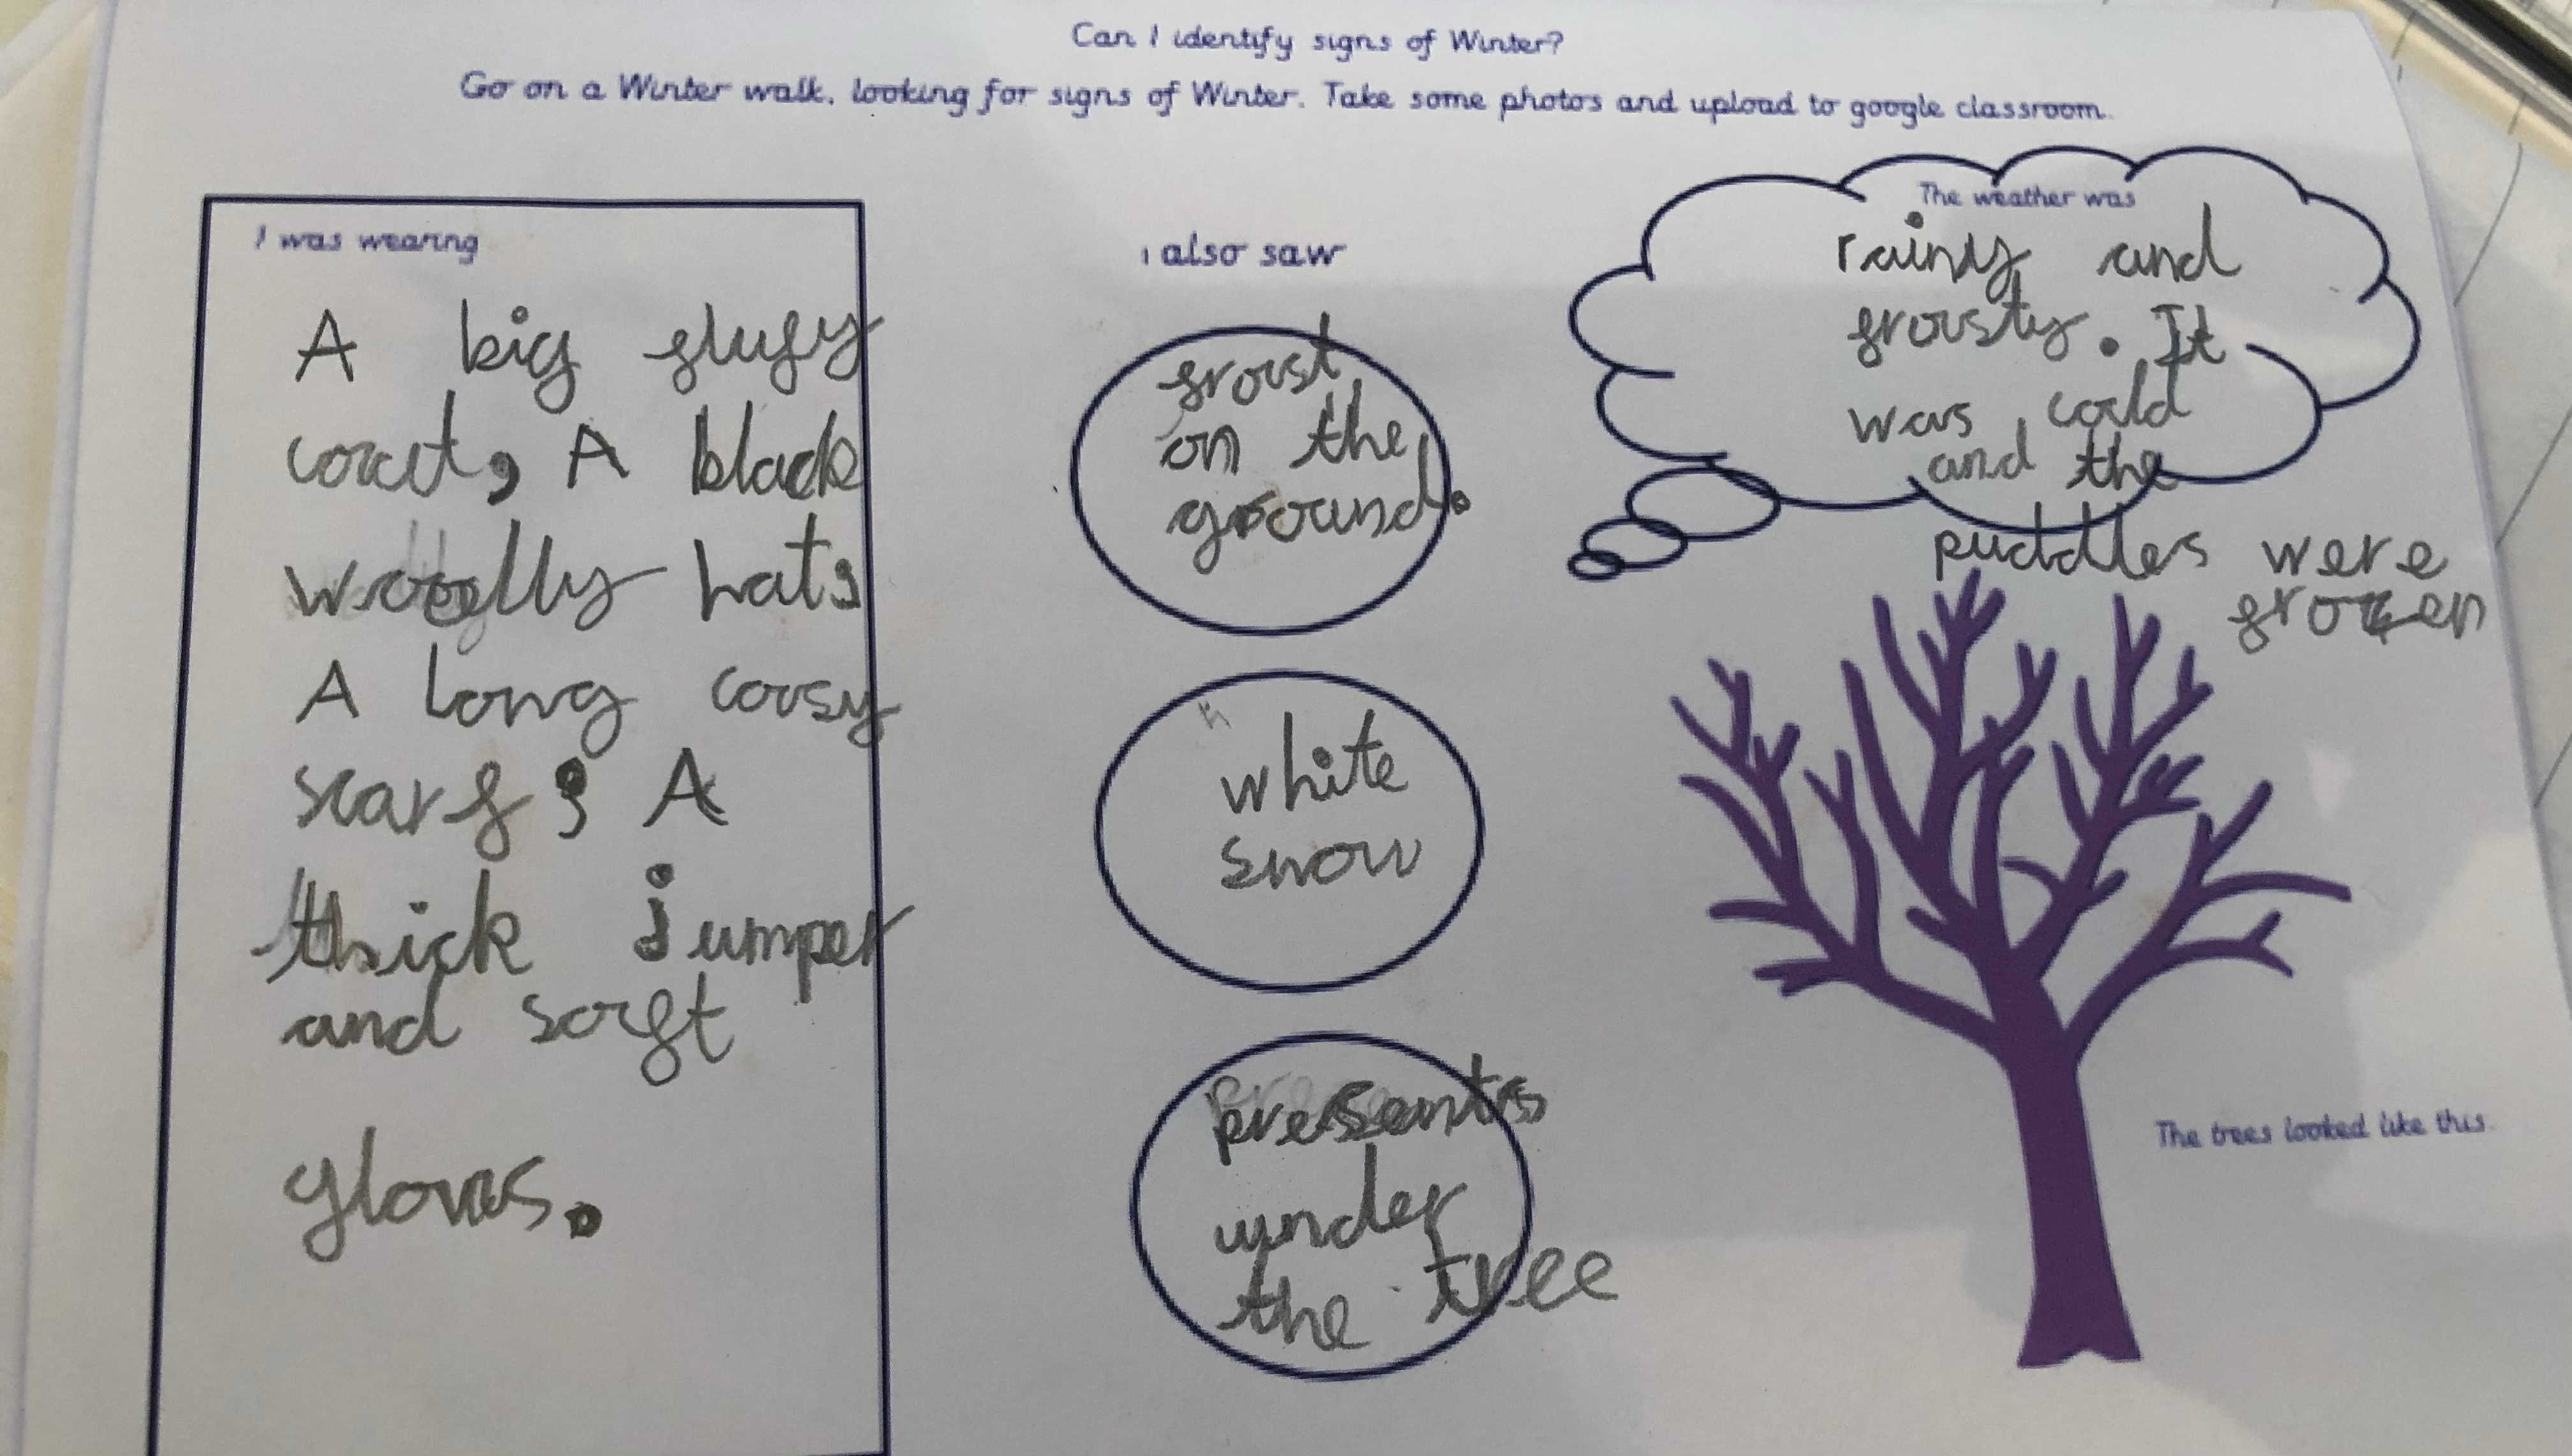 Can I identify signs of Winter?
Go on a Winter walk, looking for signs of Winter. Take some photos and upload to google classroom.
I was wearing
A big flufy
coat, A black
woolly hat,
A long cosy
scarf, A
thick jumper
and soft
gloves.
I also saw
frost
on the
ground.
white
snow
presents
under
the tree
The weather was
rainy and
frosty. It
was cold
and the
puddles were
frozen
The trees looked like this.